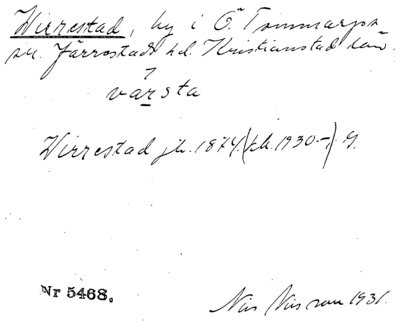 Wirrestad, by i Ö. Tommarps
sn. Järrestads hd. Kristianstad län.
varsta
Wirrestad jb. 1874. (tik. 1930-) G.
Nr 5468.
Nils Nilsson 1931.